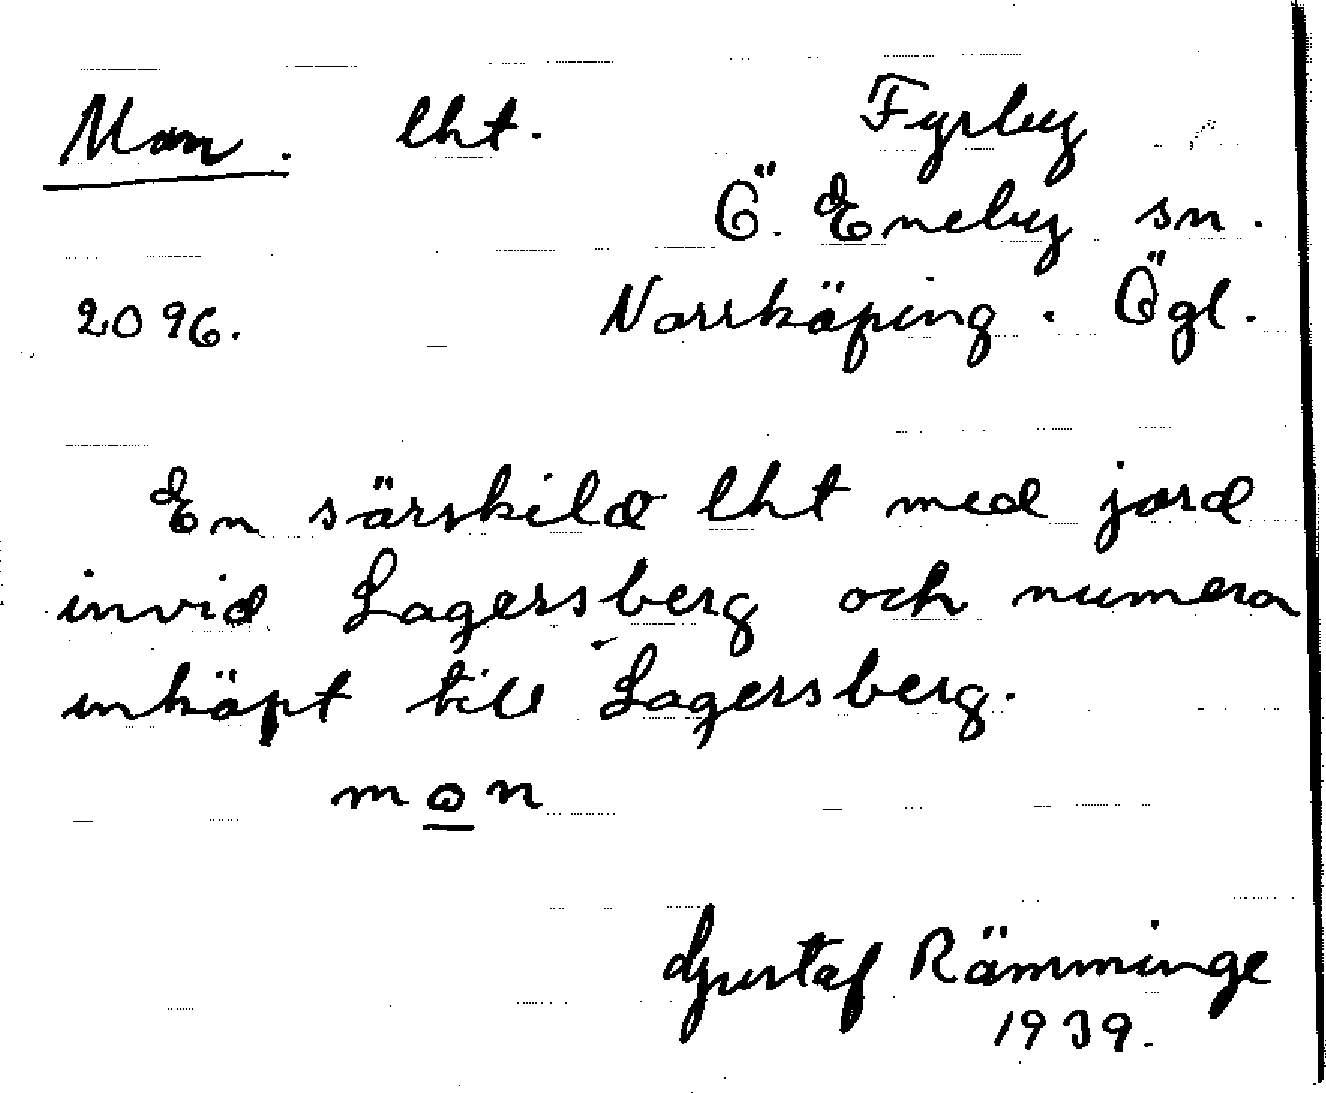 Mon. lht. Fyrby
Ö. Eneby sn.
2096. Norrköping. Ögl.
En särskild lht med jord
invid Lagersberg och numera
inköpt till Lagersberg.
mon
Gustaf Rämminge
1939.